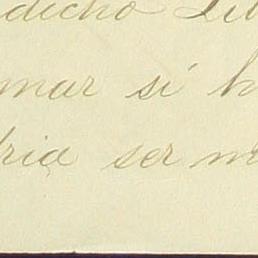 dicho Lib
mar si h
dria ser m